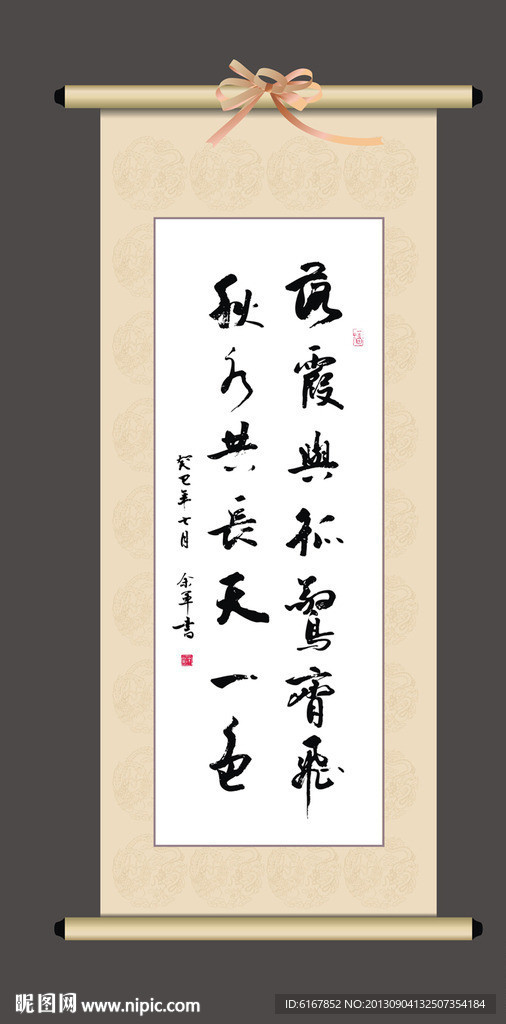 落霞與孤鶩齊飛
秋水共長天一色
癸巳年七月 余軍書
昵图网 www.nipic.com
ID:6167852 NO:20130904132507354184